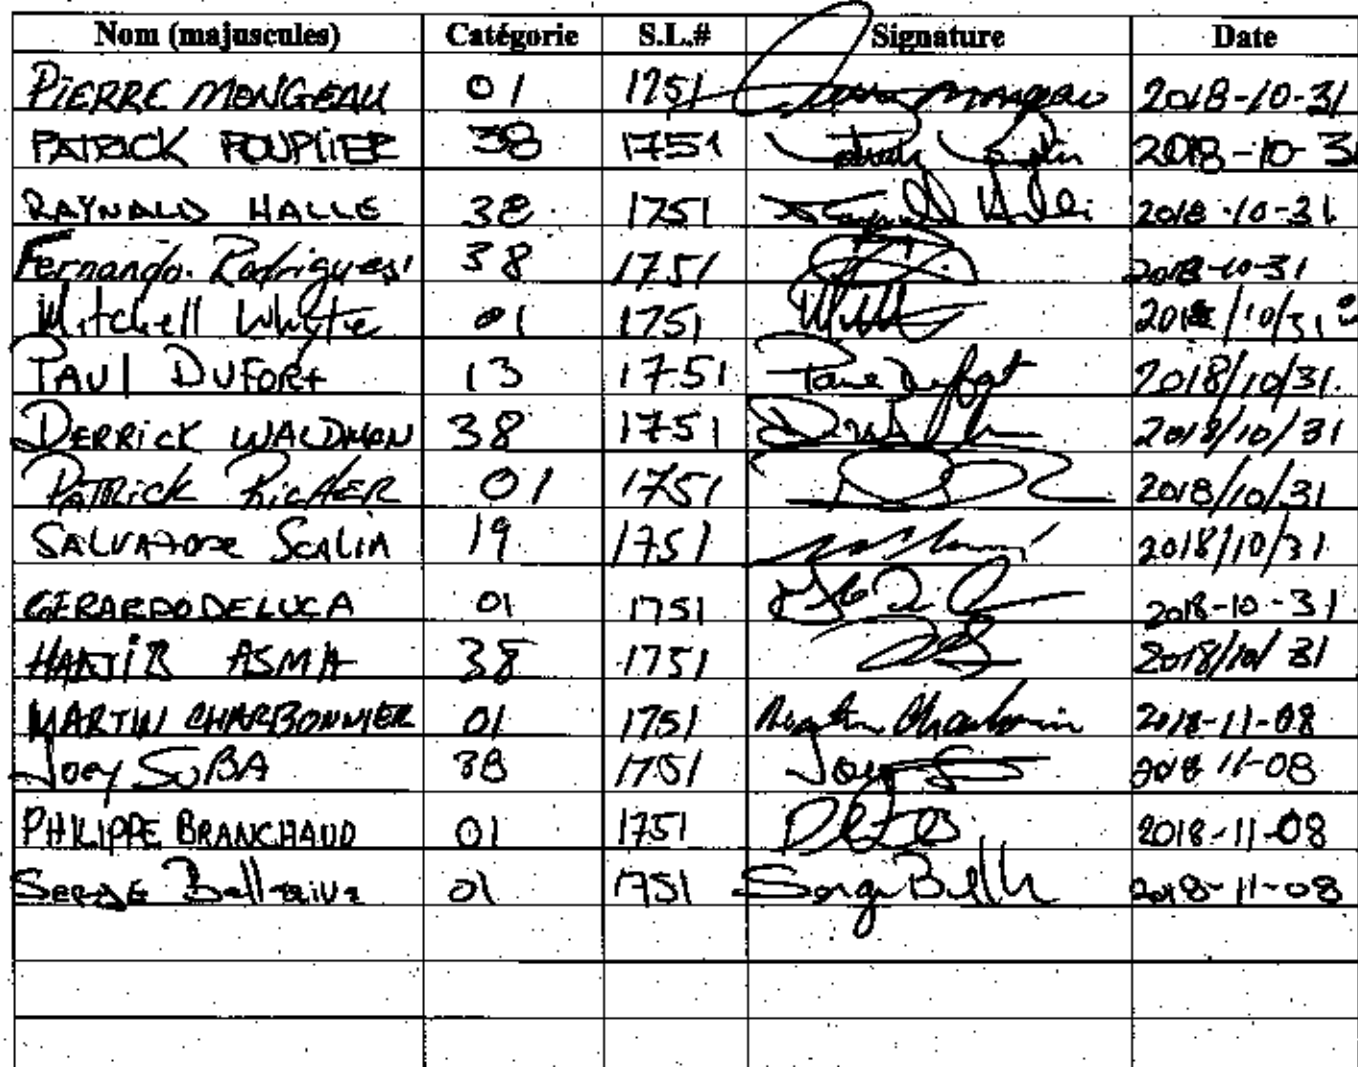 Nom (majuscules) Catégorie S.L.# Signature Date
PIERRE MONGEAU 01 1751 Pierre Mongeau 2018-10-31
PATRICK POUPLIER 38 1751 2018-10-31
RAYNALD HALLE 38 1751 2018-10-31
Fernando Rodrigues 38 1751 2018-10-31
Mitchell White 01 1751 2018/10/31
PAUl DUFORt 13 1751 2018/10/31
DERRiCK WALDMON 38 1751 2018/10/31
PATRICK RICHER 01 1751 2018/10/31
SALVATORE SCALIA 19 1751 2018/10/31
GERARDO DELUCA 01 1751 2018-10-31
HAKTIB ASMA 38 1751 2018/10/31
MARTIN CHARBONNIER 01 1751 Martin Charbonnier 2018-11-08
Joey SUBA 38 1751 Joey 2018 11-08
PHILIPPE BRANCHAUD 01 1751 2018-11-08
SERGE 01 1751 Serge 2018-11-08